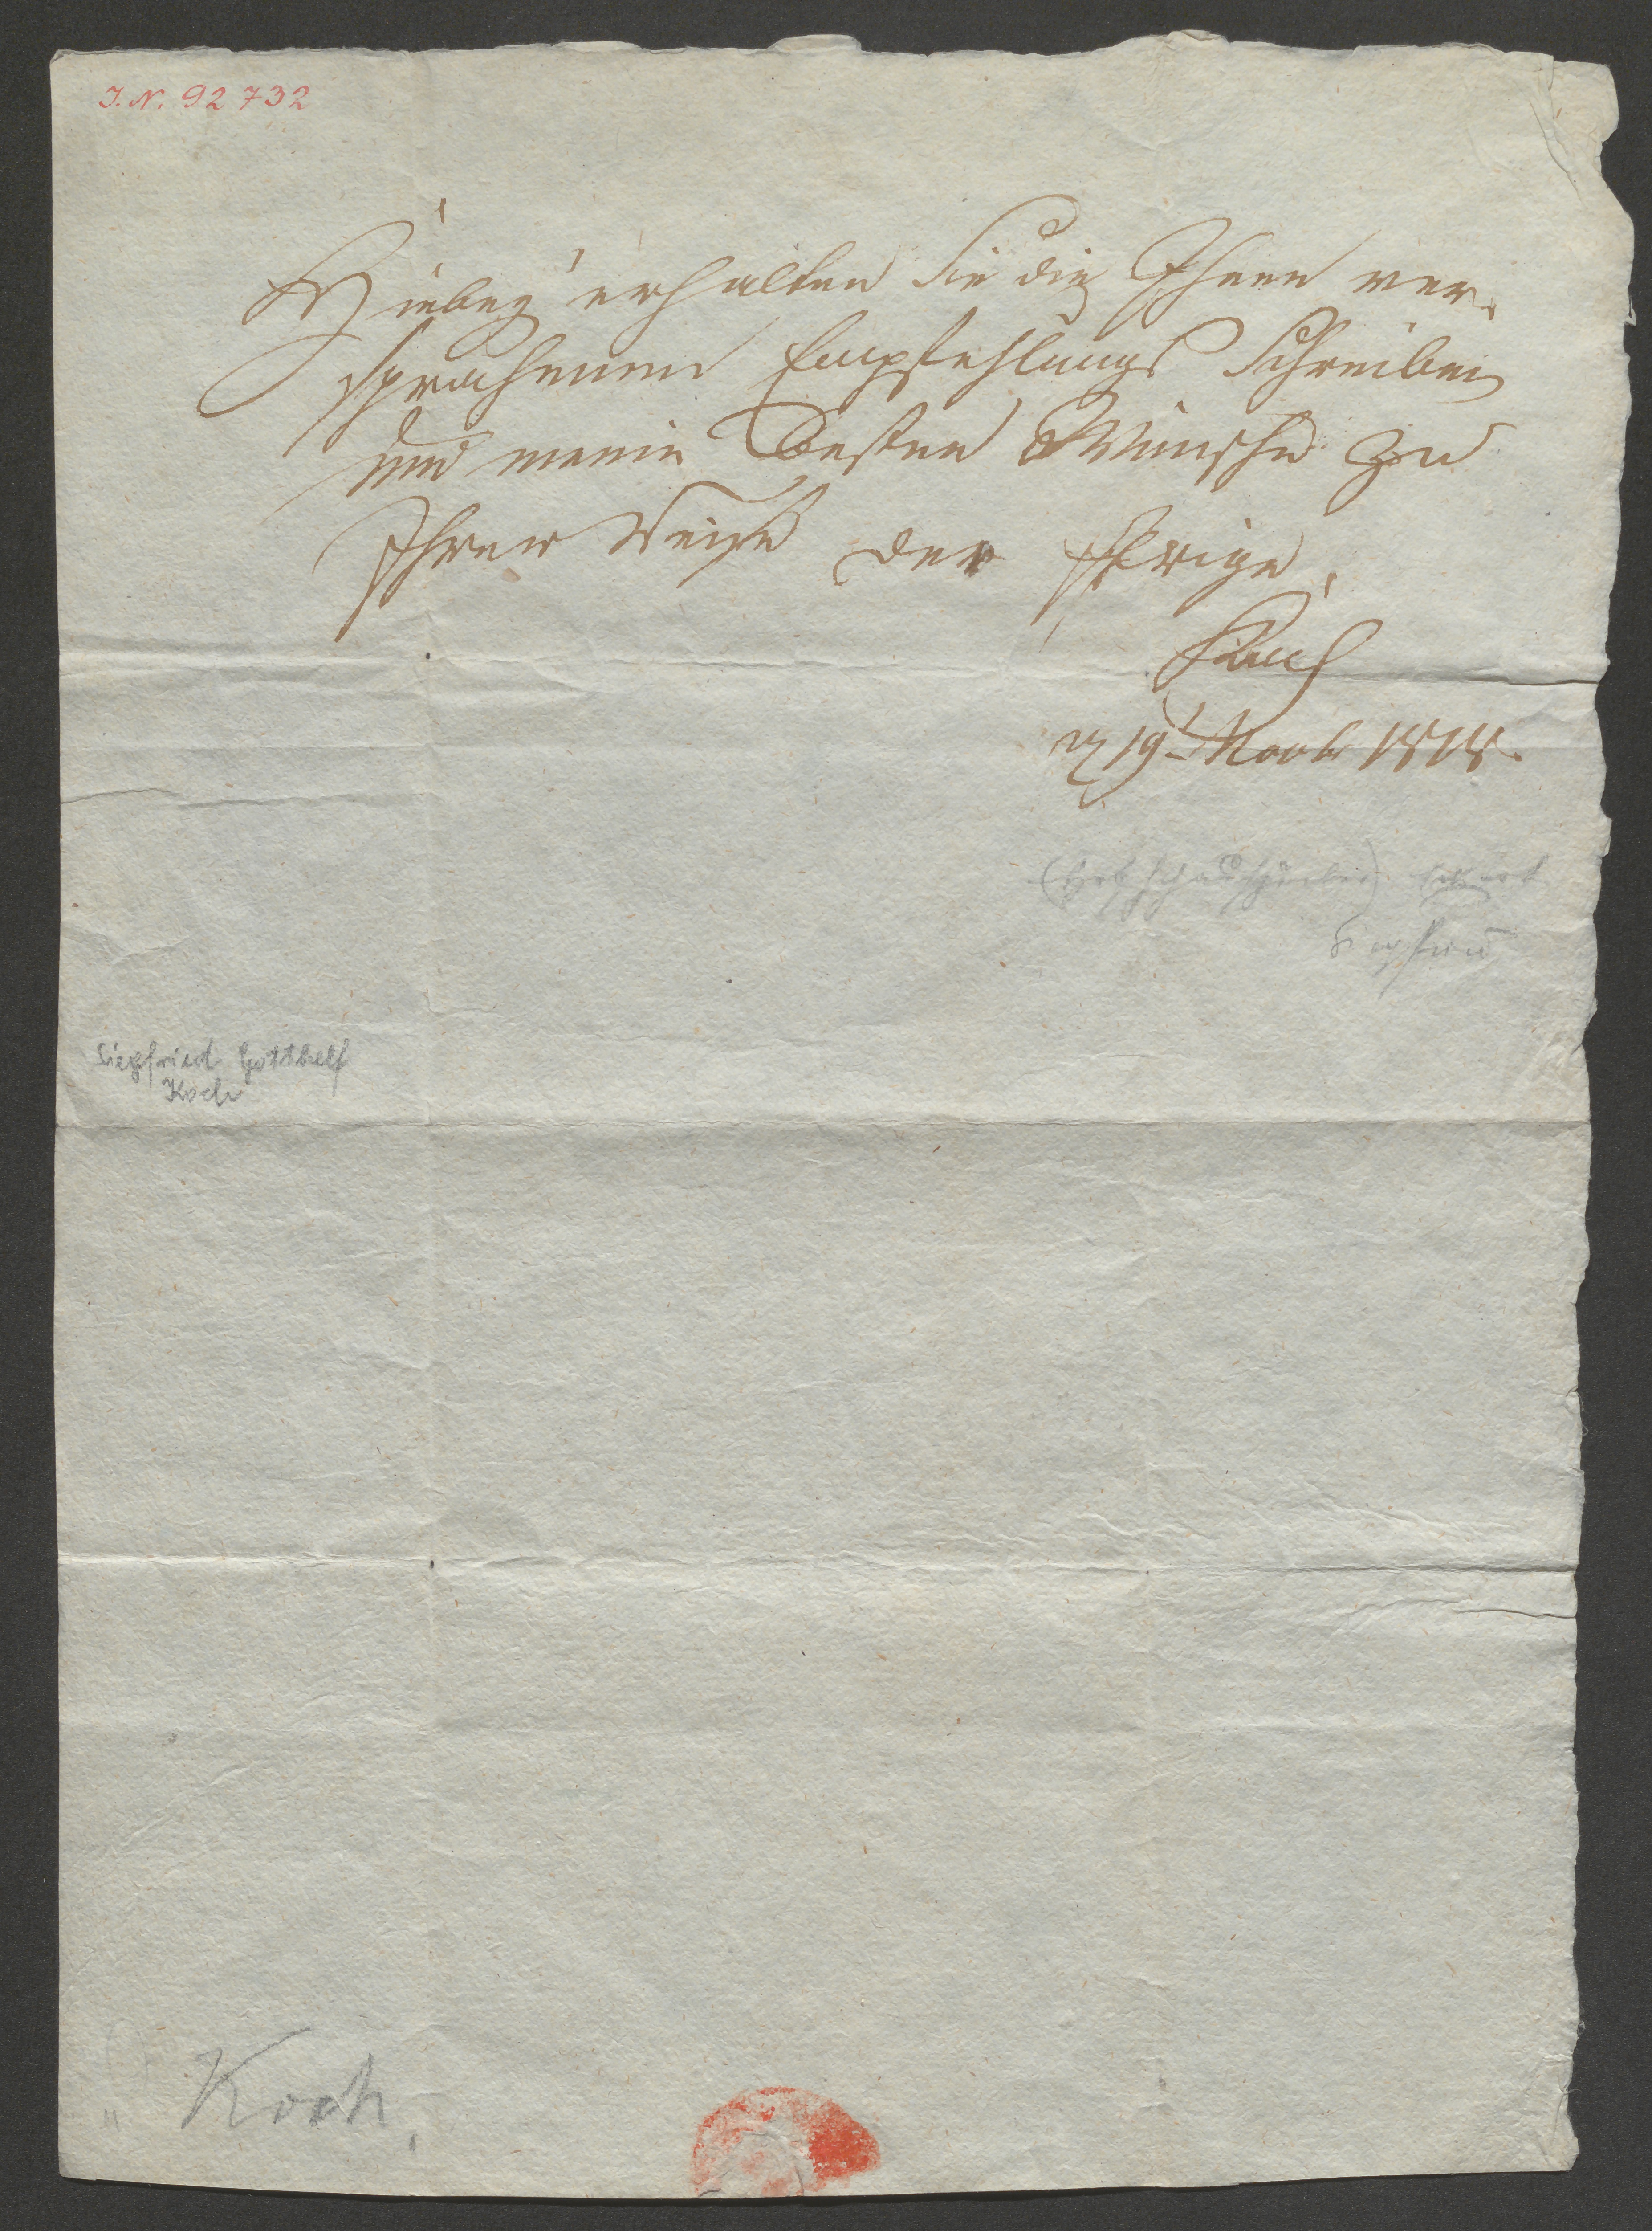 I. N. 92 732
Hiebey erhalten Sie die Ihnen ver-
sprochenen Empfehlungs Schreiben
und meine Besten Wünsche zu
Ihrer Reise der Ihrige,
Koch
19 1818.
(Hofschauspieler)
Siegfried
Siegfried Gotthelf
Koch
Koch.